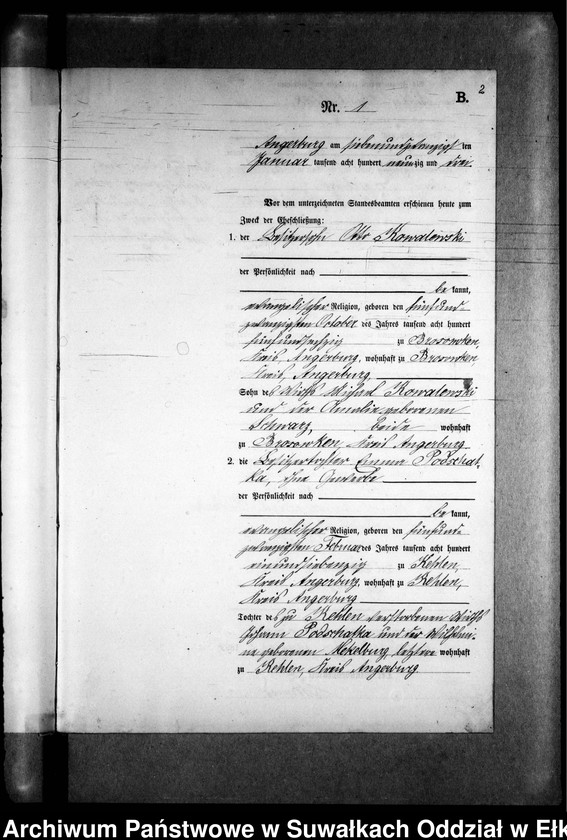 2
B.
Nr. 1
Angerburg am siebenundzwanzigsten
Januar tausend acht hundert neunzig und drei.
Vor dem unterzeichneten Standesbeamten erschienen heute zum
Zweck der Eheschließung:
1. der Besitzersohn Otto Kowalewski
der Persönlichkeit nach
be kannt,
evangelischer Religion, geboren den fünfund-
zwanzigsten October des Jahres tausend acht hundert
fünfundsechzig zu Brosowken,
Kreis Angerburg, wohnhaft zu Brosowken
Kreis, Angerburg
Sohn des Wirths Michael Kowalewski
und der Amalie geborenen
Schwarz, beide wohnhaft
zu Brosowken, Kreis Angerburg
2. die Besitzertochter Emma Podschat-
ka, ohne Gewerbe
der Persönlichkeit nach
be kannt,
evangelischer Religion, geboren den fünfund-
zwanzigsten Februar des Jahres tausend acht hundert
einundsiebenzig zu Kehlen,
Kreis Angerburg, wohnhaft zu Kehlen,
Kreis Angerburg
Tochter des zu Kehlen verstorbenen Wirths
Johann Podschatka und der Wilhelmi-
ne geborenen Mekelburg, letztere wohnhaft
zu Kehlen, Kreis Angerburg
Archiwum Państwowe w Suwałkach Oddział w Ełk